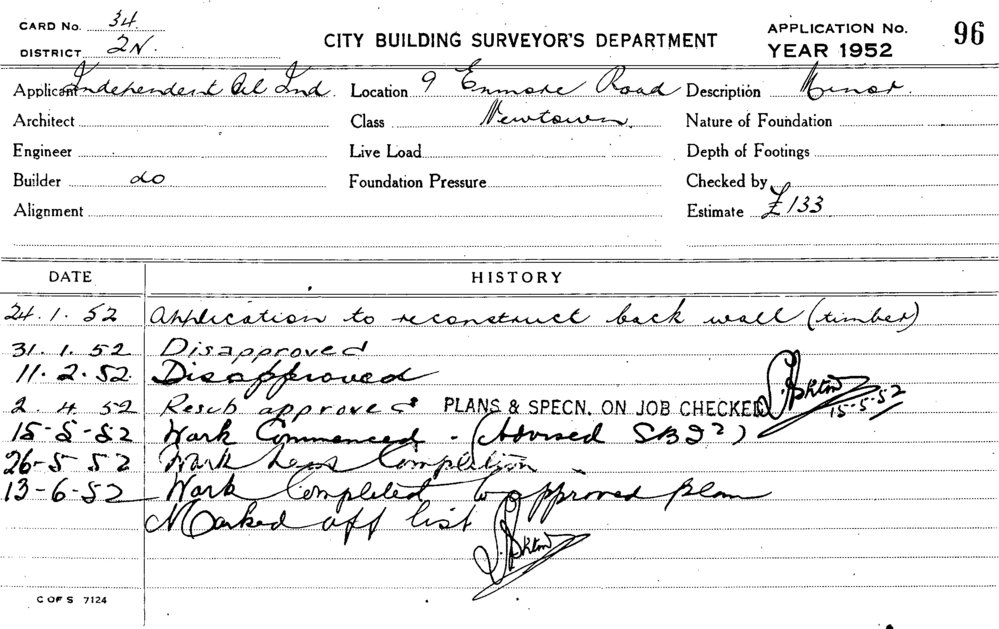 CARD No. 34
DISTRICT 2N.
CITY BUILDING SURVEYOR'S DEPARTMENT
APPLICATION No. 96
YEAR 1952
Applicant Independent Oil Ind. Location 9 Enmore Road Description Minor.
Architect Class Newtown. Nature of Foundation
Engineer Live Load Depth of Footings
Builder do Foundation Pressure Checked by
Alignment Estimate £133
DATE HISTORY
24.1.52 Application to reconstruct back wall (timber)
31.1.52 Disapproved
11.2.52. Disapproved
2.4.52 Resub approved PLANS & SPECN. ON JOB CHECKED 15-5-52
15-5-52 Work Commenced - (Advised
26-5-52 Work Completion
13-6-52 Work Completed to approved plan
Marked off list
C OF S 7124